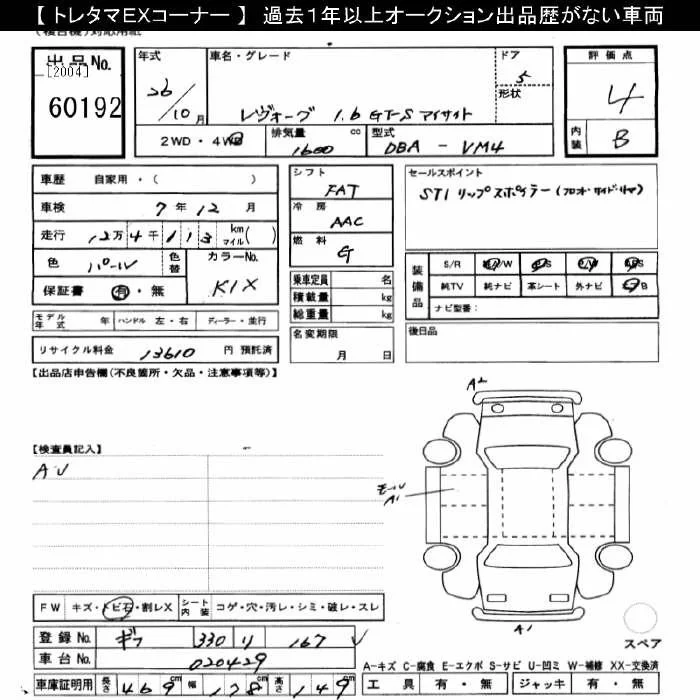 【トレタマEXコーナー】 過去1年以上オークション出品歴がない車両
出品No.
[2004]
60192
年式
26/10月
車名・グレード
レヴォーグ 1.6 GT-S アイサイト
ドア
5
形状
2WD・4WD
排気量
1600 cc
型式
DBA - VM4
評価点
4
内装
B
車歴 自家用・( )
車検 7年12月
走行 12万4千113 km マイル( )
色 パール 色替 カラーNo. K1X
保証書 有・無
モデル年式 年 ハンドル 左・右 ディーラー・並行
リサイクル料金 13610 円 預託済
シフト
FAT
冷房
AAC
燃料
G
乗車定員 名
積載量 kg
総重量 kg
名変期限
月 日
セールスポイント
STI リップスポイラー(フロント・サイド・リヤ)
装備品
S/R A/W P/S P/W ABS
純TV 純ナビ 革シート 外ナビ エアB
ナビ型番:
後日品
【出品店申告欄(不良箇所・欠品・注意事項等)】
【検査員記入】
AU
A2
モール
A1
A1
スペア
FW キズ・トビ石・割レX シート内装 コゲ・穴・汚レ・シミ・破レ・スレ
登録No. ギフ 330 リ 167
車台No. 020429
車庫証明用 長さ 469cm 幅 178cm 高さ 149cm
A-キズ C-腐食 E-エクボ S-サビ U-凹ミ W-補修 XX-交換済
工具 有・無 ジャッキ 有・無